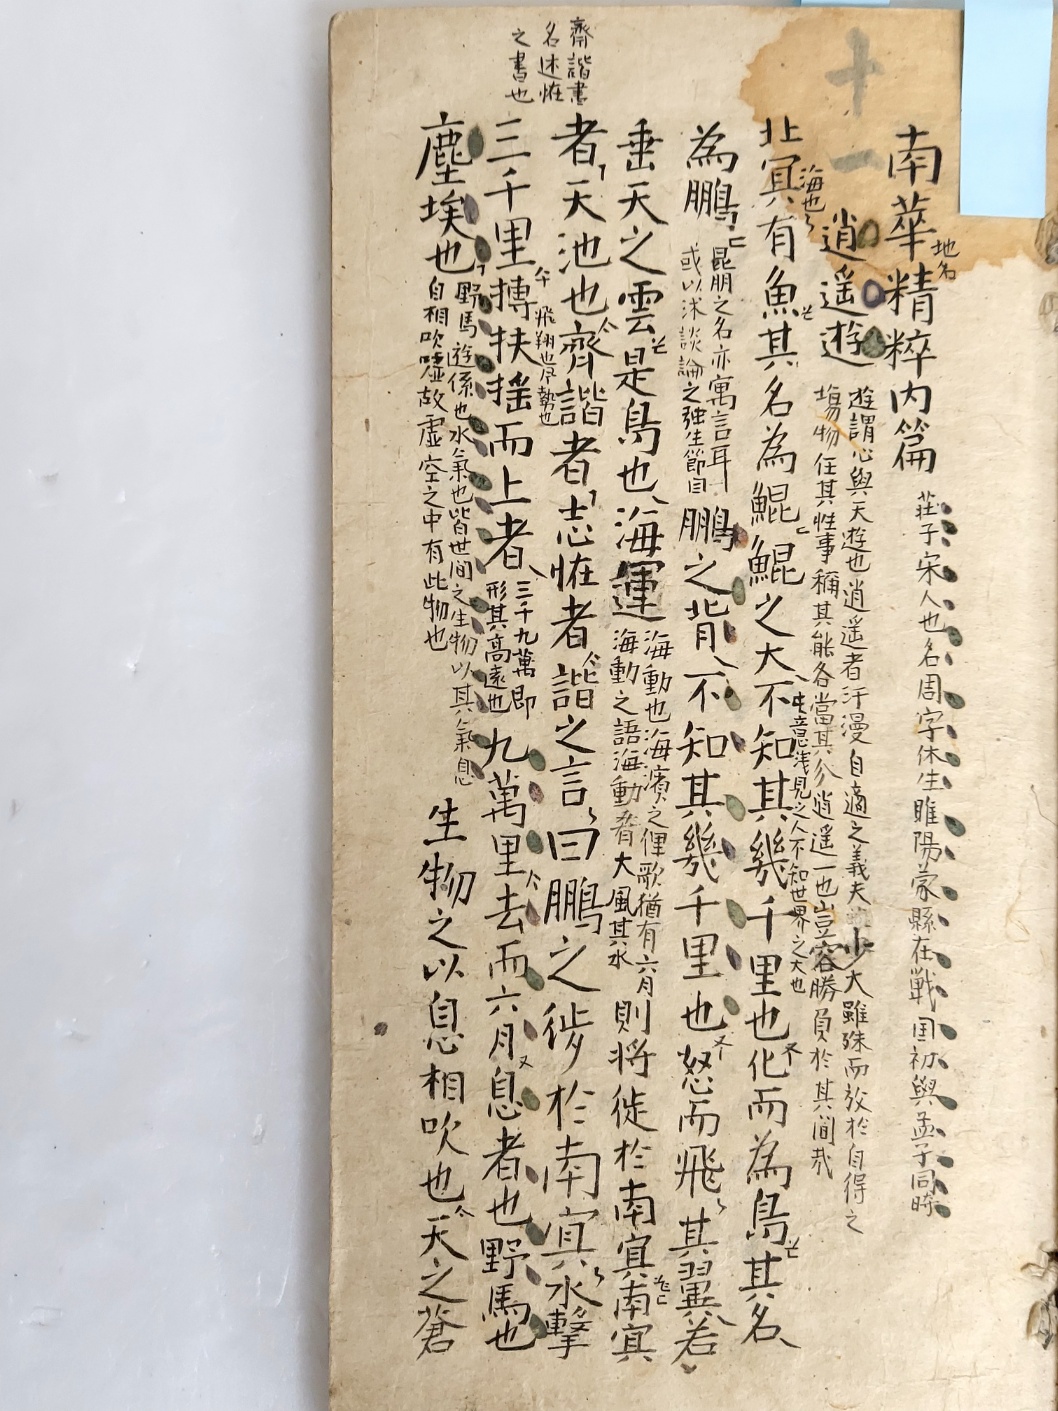 十一
南華精粹内篇
地名
莊子宋人也名周字休生睢陽蒙縣在戰国初與孟子同時
逍遥遊
遊謂心與天遊也逍遥者汗漫自適之義夫少大雖殊而放於自得之
塲物任其性事稱其能各當其分逍遥一也豈容勝負於其間哉
北冥有魚其名為鯤鯤之大不知其幾千里也化而為鳥其名
海也
意浅見之人不知世界之大也
為鵬
昆朋之名亦寓言耳
或以求談論之強生節目
鵬之背不知其幾千里也怒而飛其翼若
垂天之雲是鳥也海運
海動也海濱之俚歌猶有六月
海動之語海動者大風其水
則将徙於南冥南冥
者天池也齊諧者志恠者諧之言曰鵬之徙於南冥水擊
齊諧書
名述恠
之書也
三千里搏扶揺而上者
飛翔也勢也
三千九萬即
形其高遠也
九萬里去而六月息者也野馬也
塵埃也
野馬遊係也水氣也皆世间之生物以其氣息
自相吹噓故虚空之中有此物也
生物之以息相吹也天之蒼